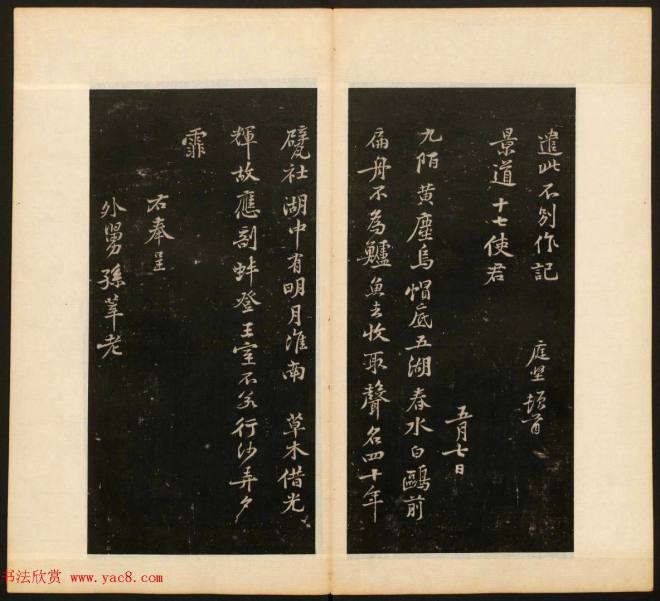 遣此不別作記
庭堅頓首
景道十七使君
五月七日
九陌黃塵烏帽底五湖春水白鷗前
扁舟不為鱸魚去收取聲名四十年
甓社湖中有明月淮南草木借光
輝故應剖蚌登王室不若行沙弄夕
霏
右奉呈
外舅孫莘老
书法欣赏 www.yac8.com